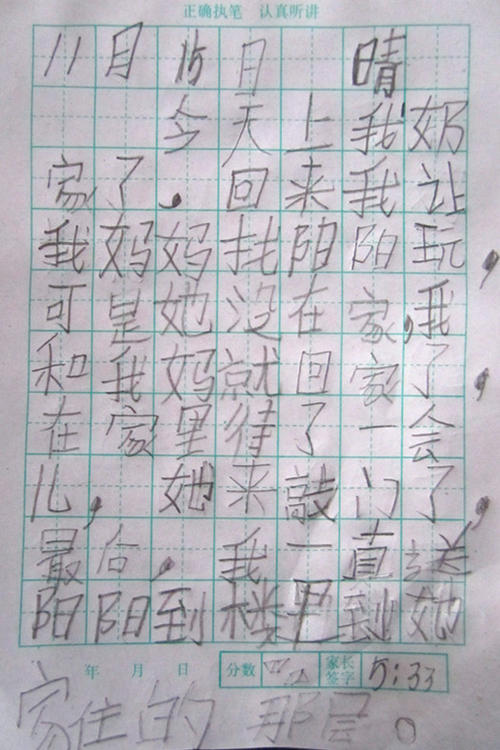 正确执笔 认真听讲
11月15日 晴
今天上我奶
家了。回来我让
我妈妈找阳阳玩，
可是她没在家，我
和我妈就回家了，
在家里待了一会
儿，她来敲门了，
最后，我一直送
阳阳到楼里到她
年 月 日 分数 家长签字 5:33
家住的那层。